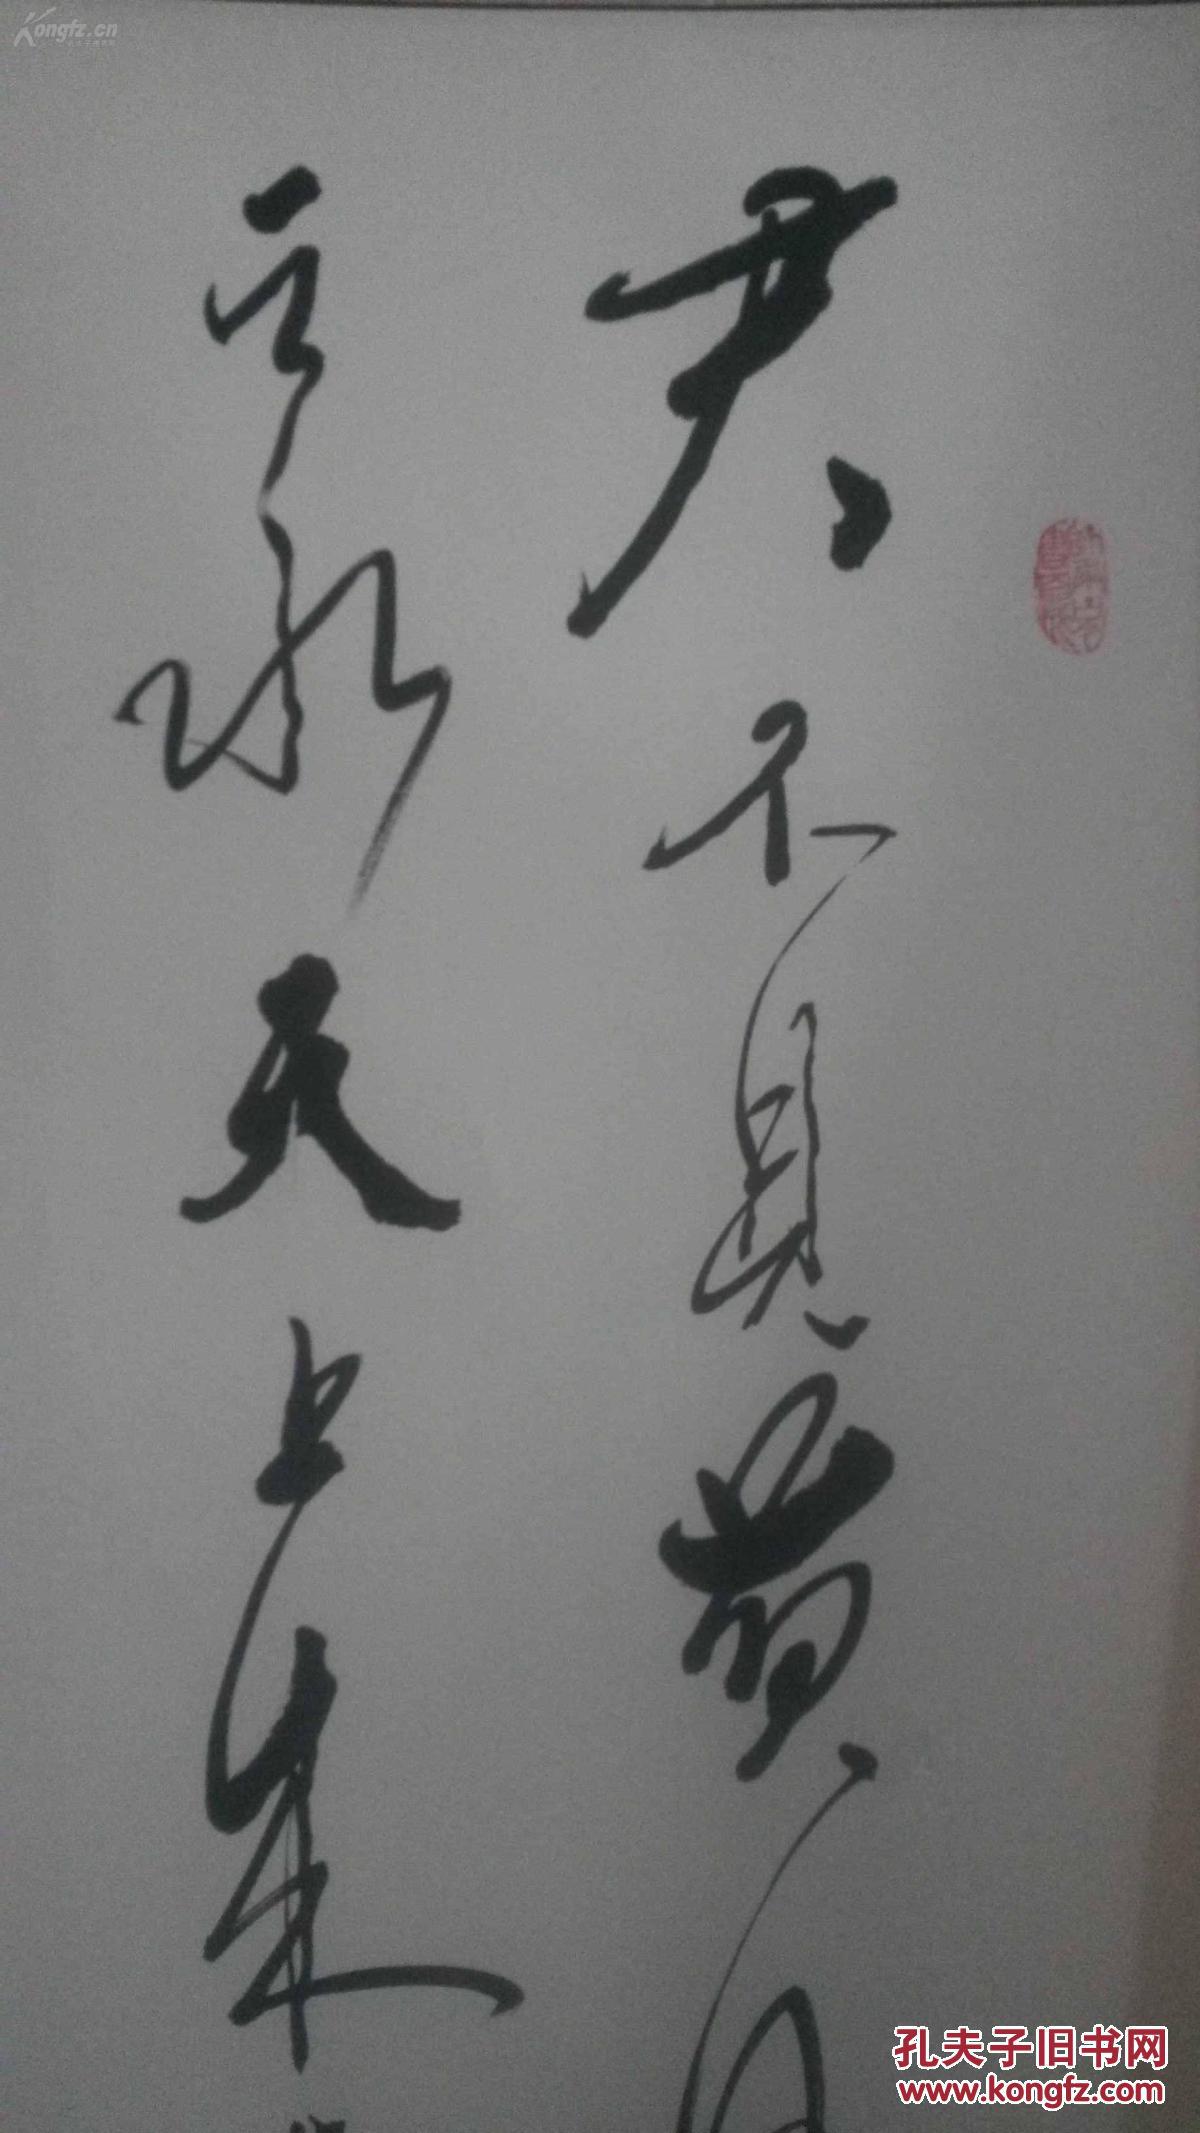 君不見黄河
之水天上来
孔夫子旧书网
www.kongfz.com
Kongfz.cn